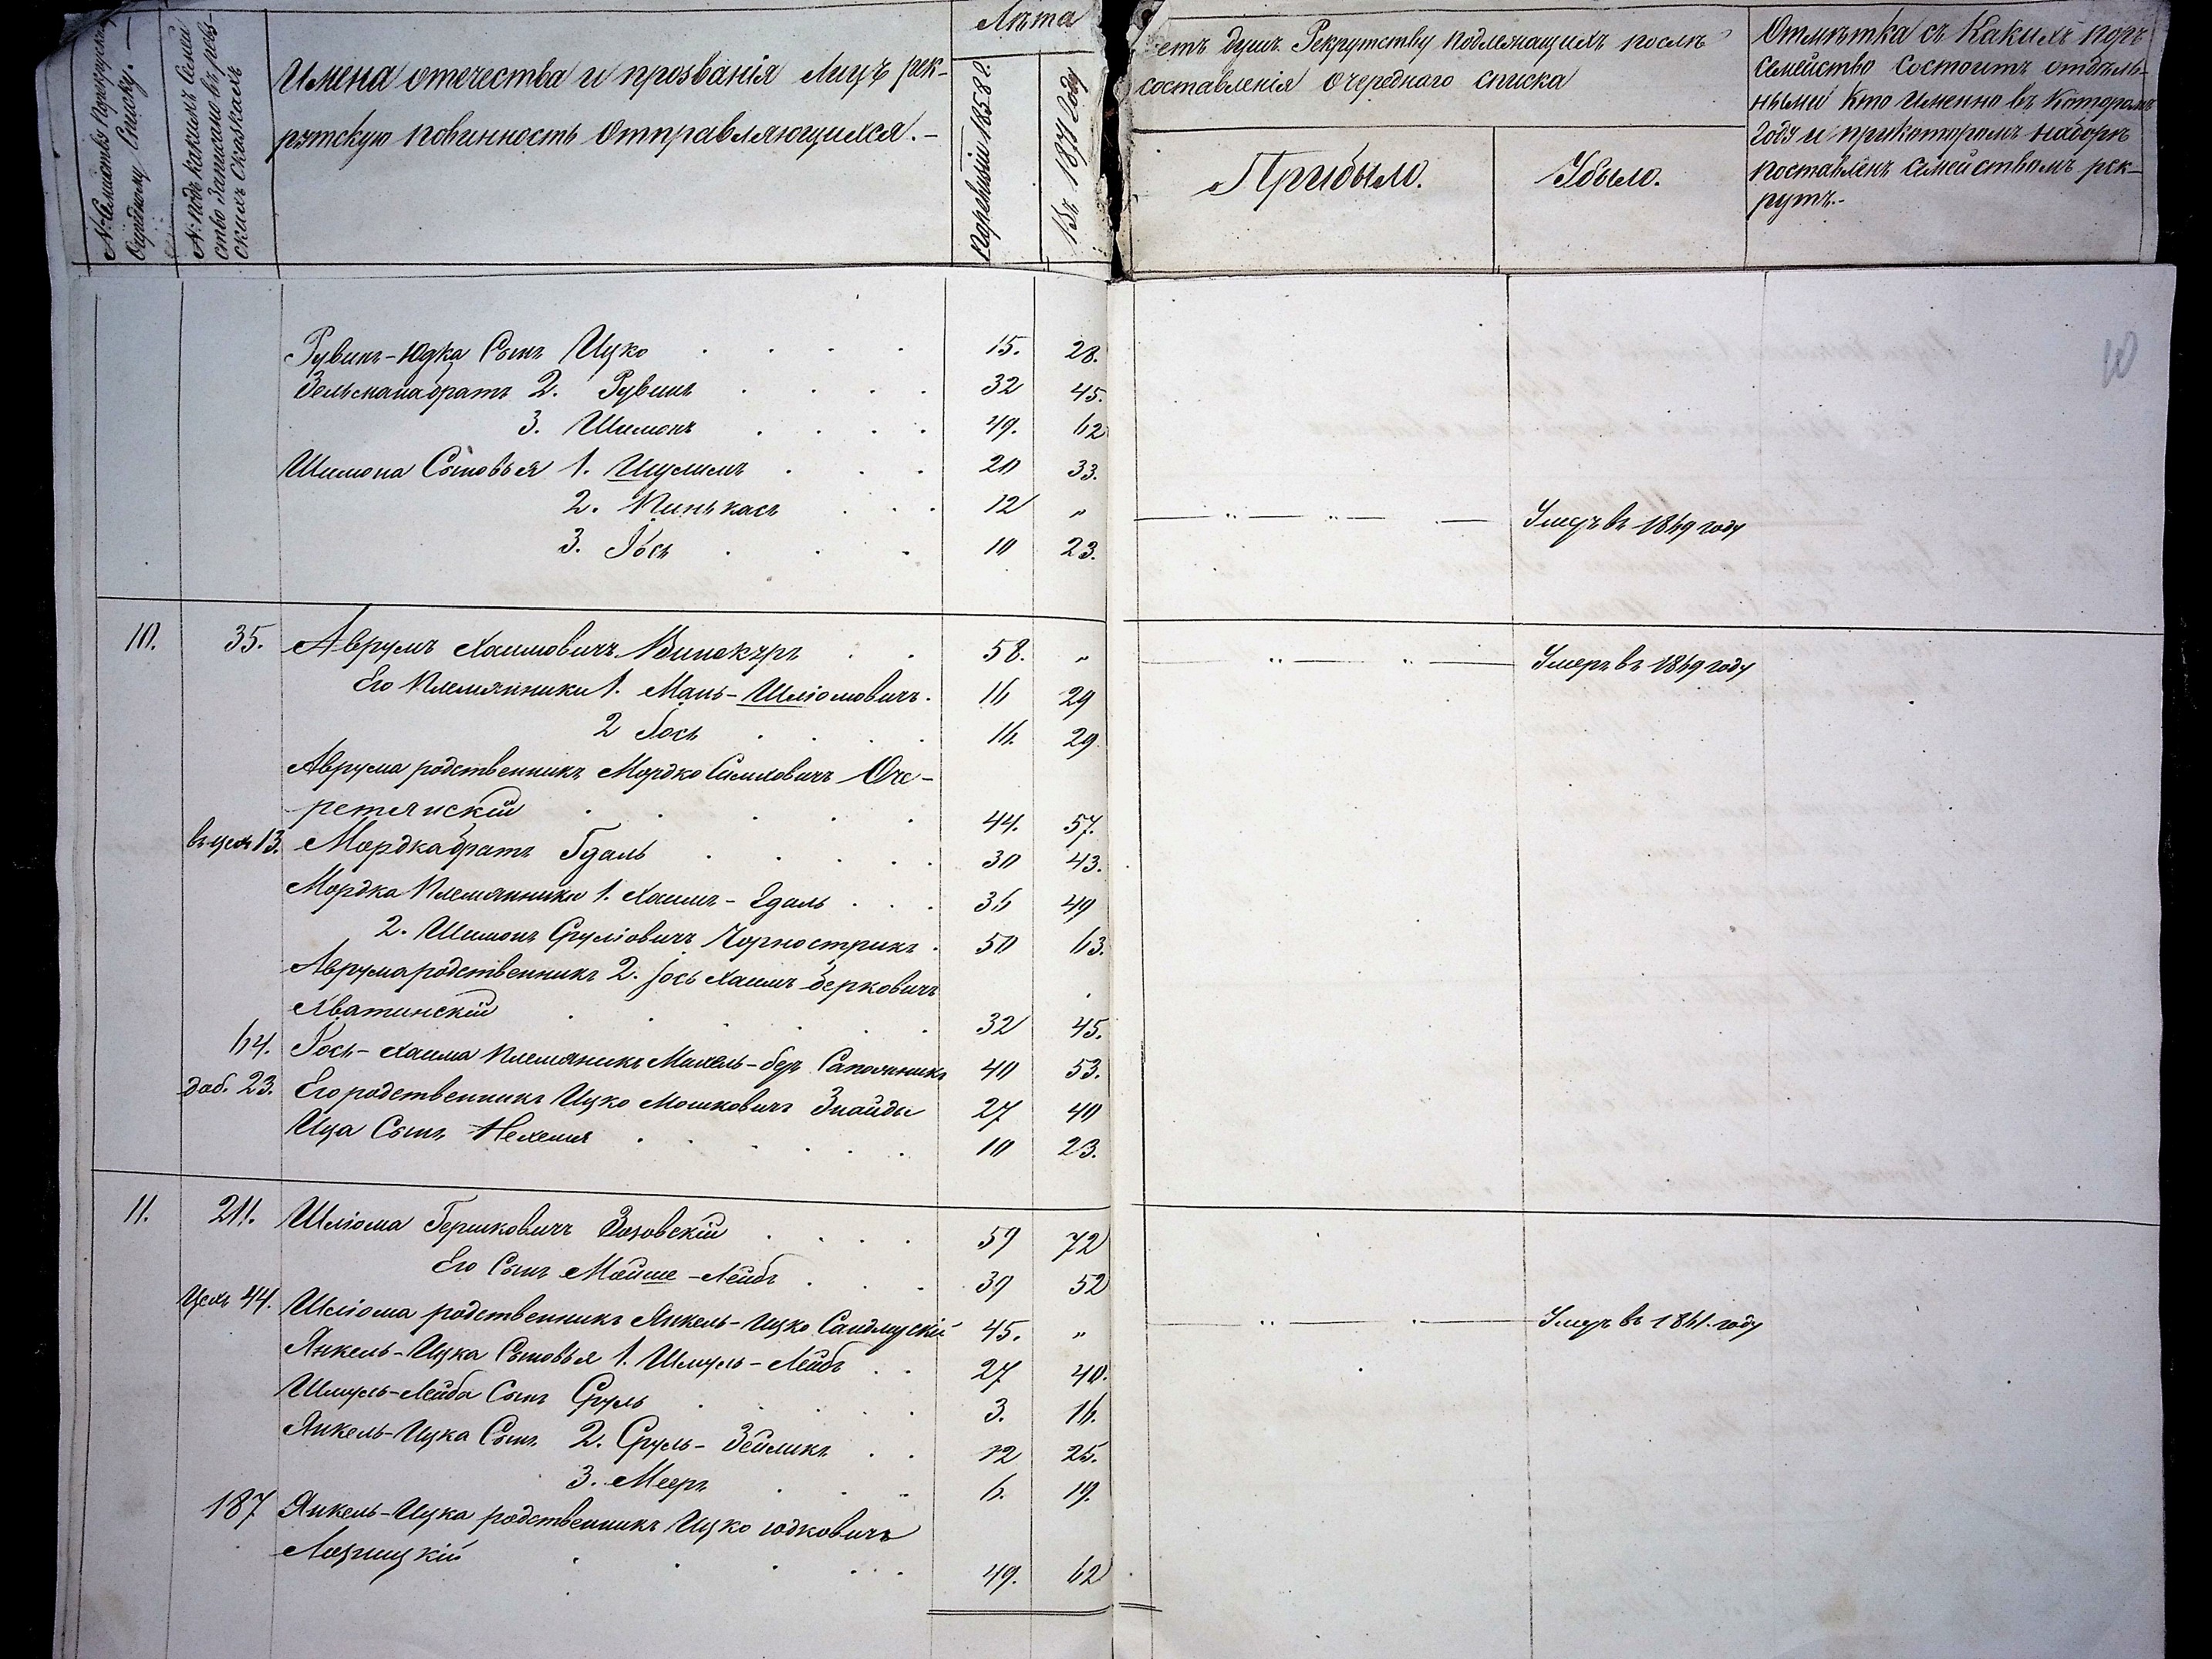 № Семейства по рекрутскому Очередному Списку. —
№ подъ какимъ Семейство записано въ ревизскихъ Сказкахъ
Имена отечества и прозванія Лицъ рек-
рутскую повинность Отправляющихся. –
Лѣта
По ревизіи 1858 г.
Въ 1871 Году
етъ душъ Рекрутству подлежащихъ послѣ
составленія Очереднаго списка
Прибыло.
Убыло.
Отмѣтка съ Какихъ поръ
Семейство Состоитъ отдѣль-
нымъ Кто Именно въ Которомъ
Году и прикоторомъ наборѣ
поставленъ Семействомъ рек-
рутъ.-
10
Рувинъ-Юдка Сынъ Ицко 15. 28.
Зельмана братъ 2. Рувинъ 32 45.
3. Шимонъ 49. 62
Шимона Сыновья 1. Шулимъ 20 33.
2. Пинькасъ 12 " Умеръ въ 1869 году
3. Іось 10 23.
10. 35. Аврумъ Хаимовичъ Винокуръ 58. " Умеръ въ 1869 году
Его Племянники 1. Мань-Шліомовичъ. 16 29
2 Іось 16. 29
Аврума родственникъ Мордко Симховичъ Оче-
ретянскій 44. 57.
въ цехъ 13. Мордка братъ Гдаль 30 43.
Мордка Племянники 1. Хаимъ-Гдаль 36 49
2. Шимонъ Сруліовичъ Чорнострикъ 50 63.
Аврума родственникъ 2. Іось Хаимъ Берковичъ
Хватинскій 32 45.
64. Іось-Хаима Племяникъ Махель-беръ Сапожникъ 40 53.
доб. 23. Его родственникъ Ицко Мошковичъ Знайды 27 40
Ица Сынъ Нехемія 10 23.
11. 211. Шліома Гершковичъ Зозовскій 59 72
Его Сынъ Мойше-Лейбъ 39 52
Цехъ 44. Шліома родственникъ Янкель-Ицко 45. " Умеръ въ 1861. году
Янкель-Ицка Сыновья 1. Шмуль-Лейбъ 27 40.
Шмуль-Лейба Сынъ Сруль 3. 16.
Янкель-Ицка Сынъ 2. Сруль-Зейликъ 12 25.
3. Мееръ 6. 19.
187 Янкель-Ицка родственникъ Ицко Юдковичъ
Лозницкій 49. 62